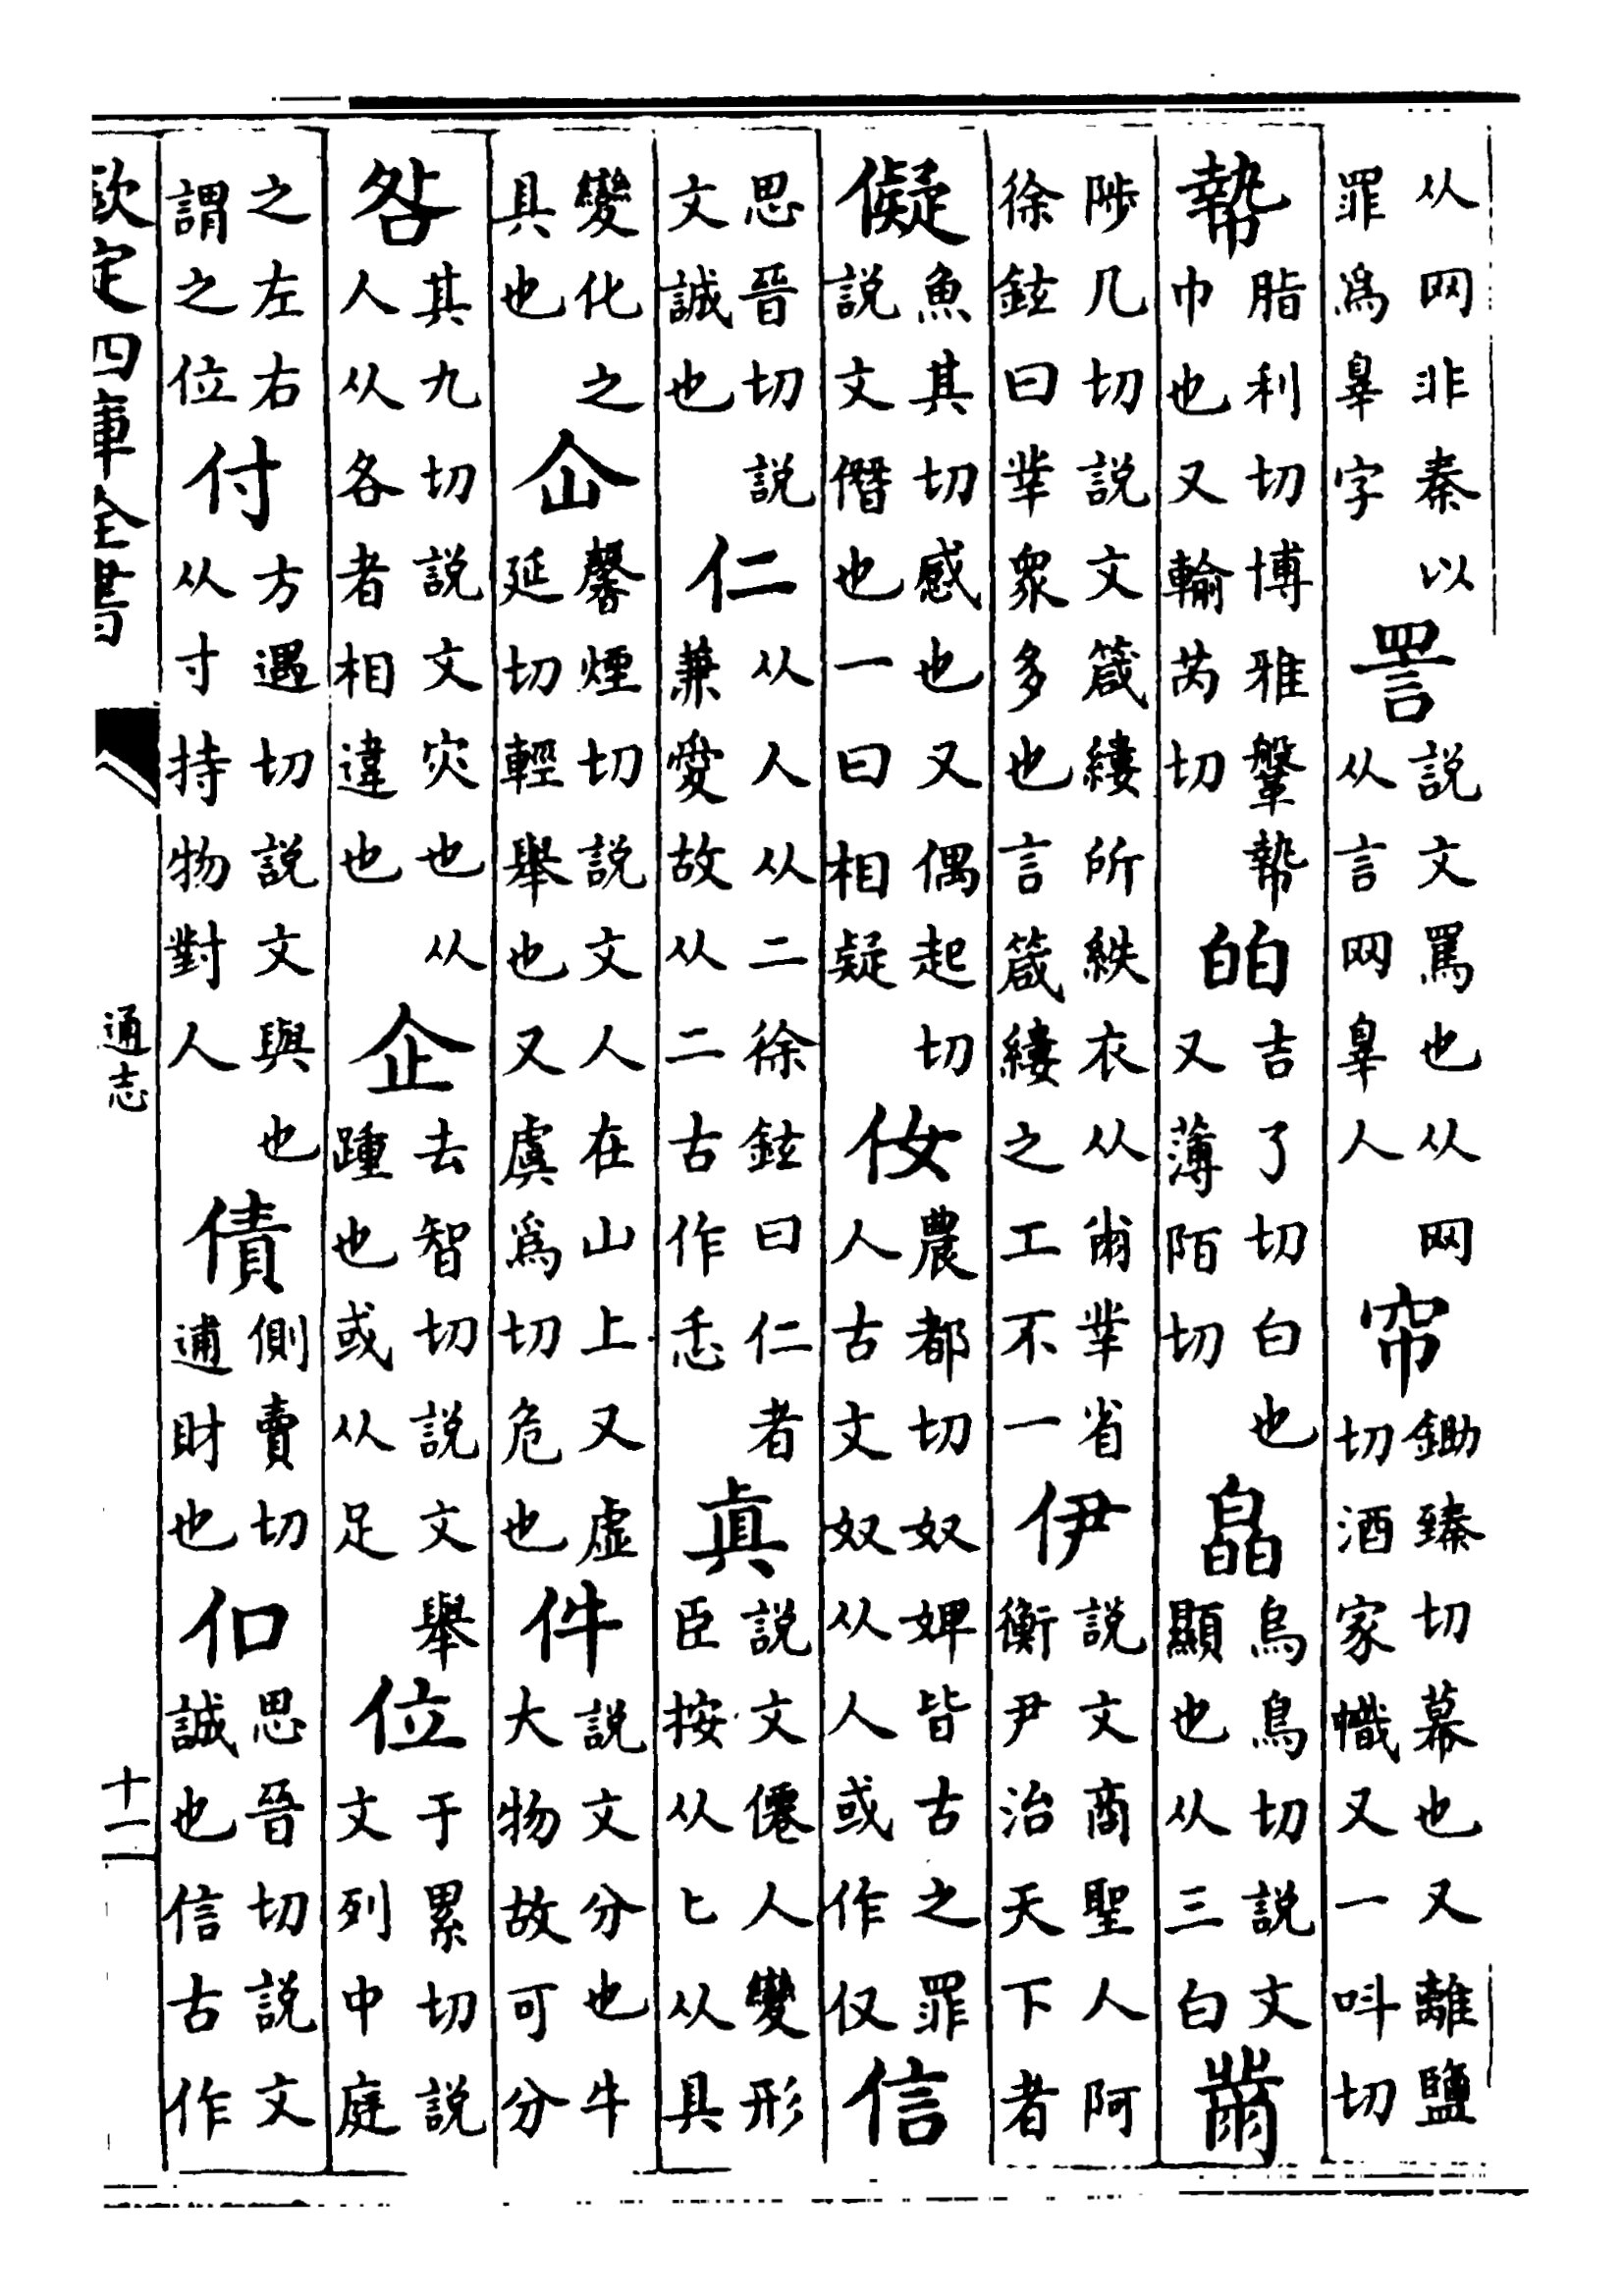 从网非秦以罪爲辠字詈說文罵也从网从言网辠人帘鋤臻切幕也又離鹽切酒家幟又一呌切
㡠脂利切博雅鞶㡠巾也又輸芮切皕吉了切白也又薄陌切皛烏鳥切說文顯也从三白黹
陟几切說文箴縷所紩衣从㡀丵省徐鉉曰丵衆多也言箴縷之工不一伊說文商聖人阿衡尹治天下者
儗魚其切感也又偶起切說文僭也一曰相疑㐐農都切奴婢皆古之罪人古文奴从人或作仅信
思晉切說文誠也仁从人从二徐鉉曰仁者兼愛故从二古作忎眞說文僊人變形臣按从匕从具
變化之具也仚馨煙切說文人在山上又虛延切輕舉也又虞爲切危也件說文分也牛大物故可分
咎其九切說文灾也从人从各者相違也企去智切說文舉踵也或从足位于累切說文列中庭
之左右謂之位付方遇切說文與也从寸持物對人債側賣切逋財也㐰思晉切說文誠也信古作
欽定四庫全書
通志
十一